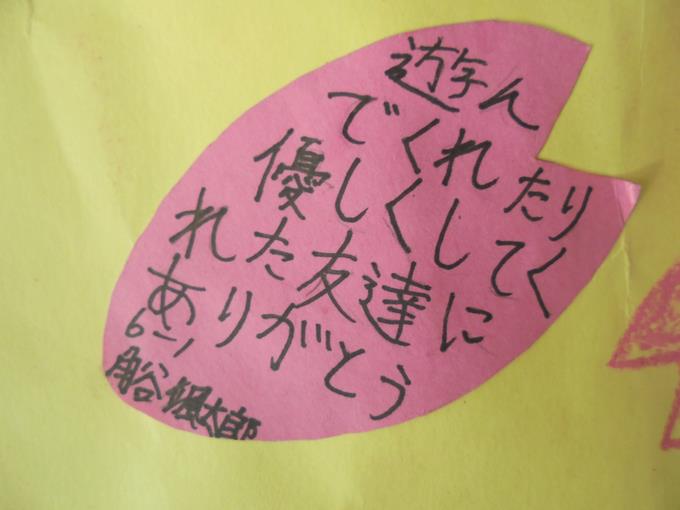 遊ん
でくれたり
優しくしてく
れた友達に
ありがとう
6-1
角谷颯太郎